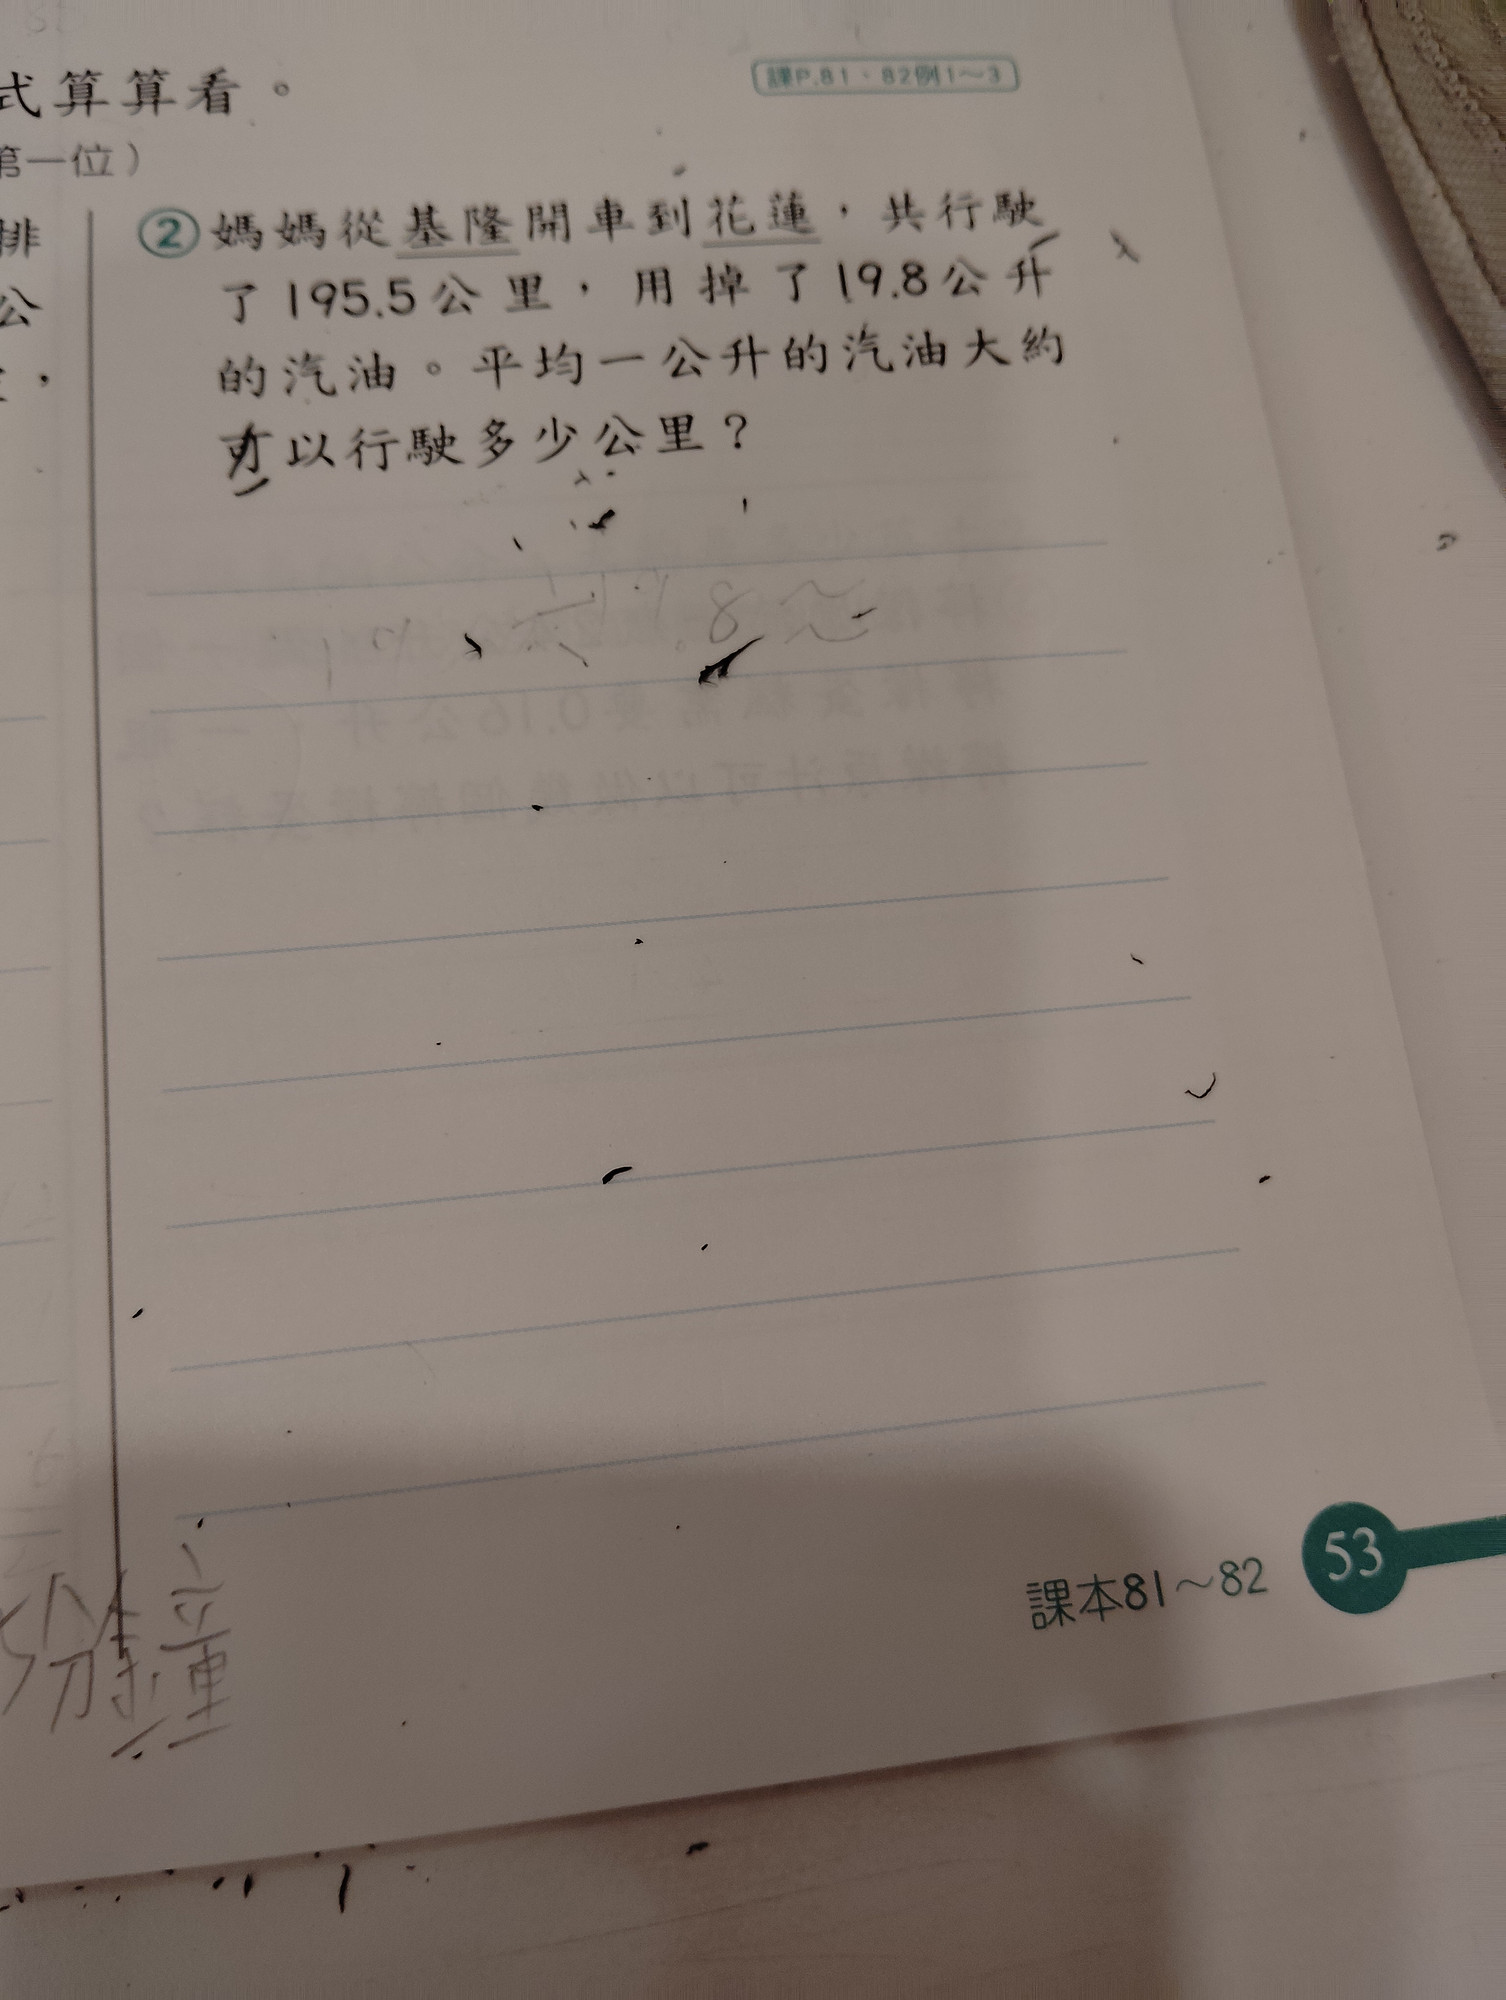 式算算看。
課P.81、82例1~3
第一位)
排
公
②媽媽從基隆開車到花蓮，共行駛
了195.5公里，用掉了19.8公升
的汽油。平均一公升的汽油大約
可以行駛多少公里？
分鐘
課本81~82
53